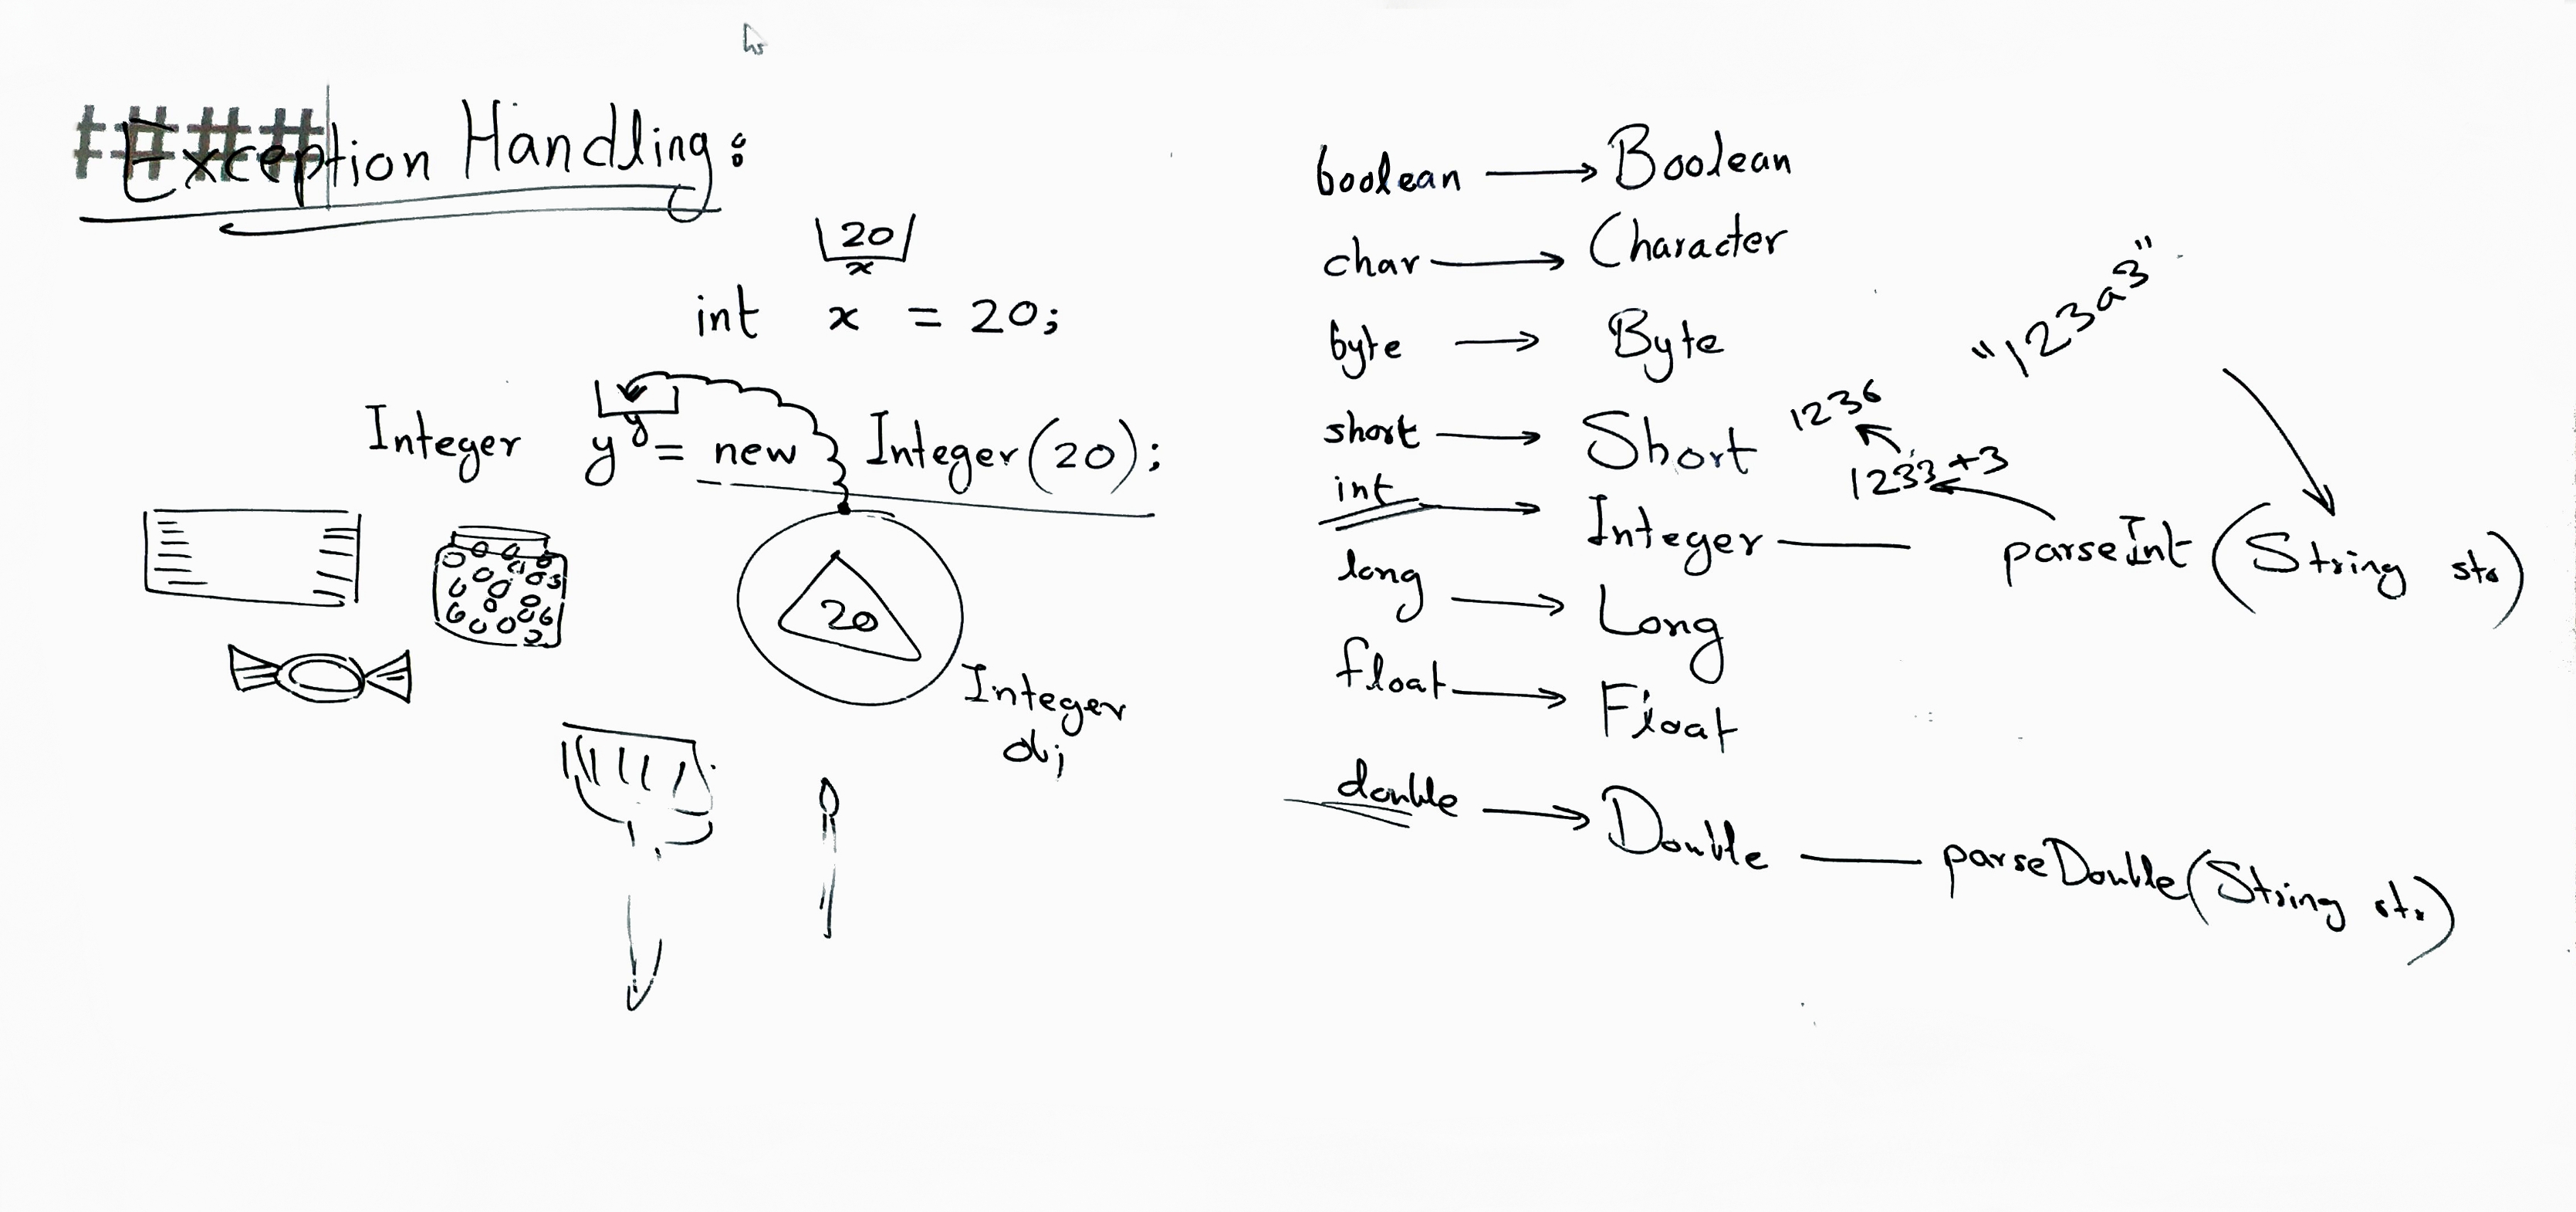 Exception Handling:
20
x
int x = 20;
y
Integer y = new Integer(20);
20
Integer
obj
boolean → Boolean
char → Character
byte → Byte
short → Short
int → Integer — parseInt(String str)
"123a3"
1236
1233+3
long → Long
float → Float
double → Double — parseDouble(String str)